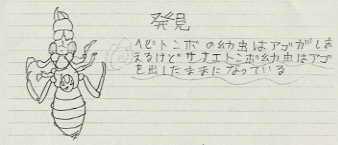 発見
ヘビトンボの幼虫はアゴがしま
えるけどサナエトンボ幼虫はアゴ
を出したままになっている